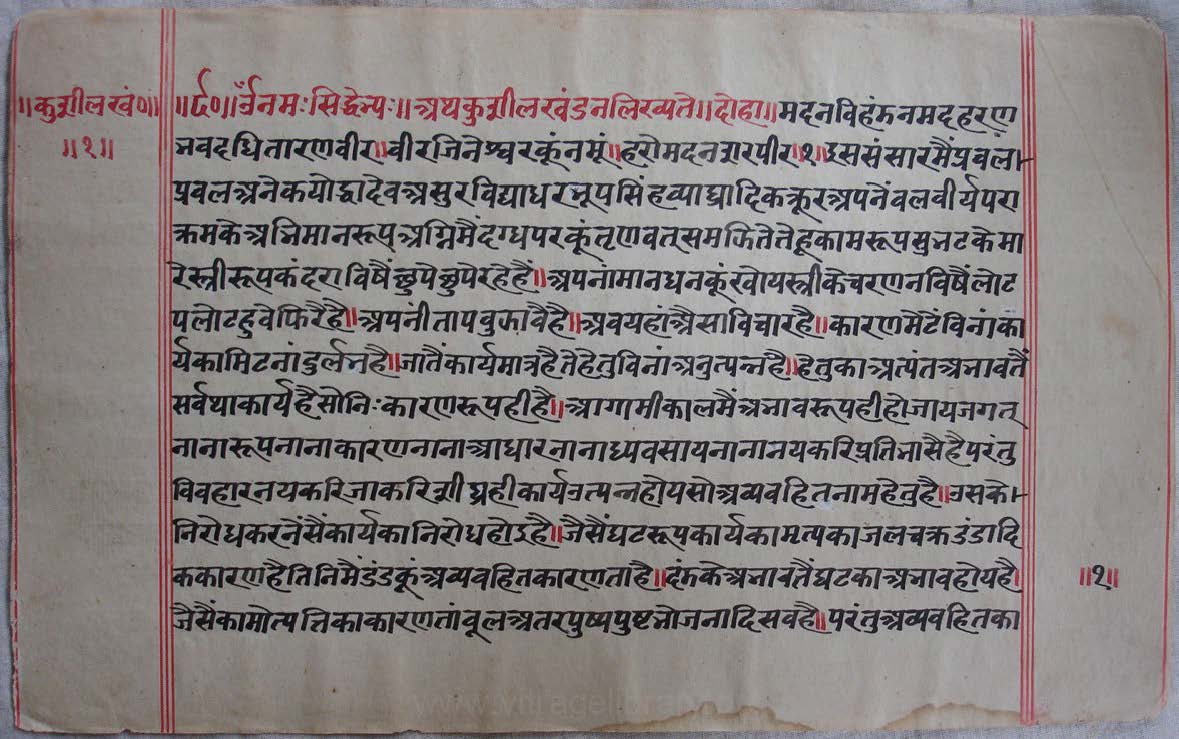 ॥कुशीलखं०॥
॥१॥
॥८०॥ ॐनमःसिद्धेभ्यः॥अथकुशीलखंडनलिख्यते॥दोहा॥मदनविहंडनमदहरण
भवदधितारणवीर॥वीरजिनेश्वरकूंनमूं॥हरोमदनशरपीर॥१॥इससंसारमैप्रबल।
प्रबलअनेकयोद्धादेवअसुरविद्याधरभूपसिंहव्याघ्रादिकक्रूरअपनेंबलवीर्यपरा
क्रमकेअभिमानरूपअग्निमैंदग्धपरकूंतृणवत्समझितेतेहूकामरूपसुभटकेमा
रेस्त्रीरूपकंदराविषैंछुपेछुपेरहेहैं॥अपनांमानधनकूंखोयस्त्रीकेचरणनविषैंलोट
पलोटहुवेफिरैहै॥अपनींतापबुझावैहै॥अबयहांअैसाविचारहै॥कारणमेटेंविनांका
र्यकामिटनांदुर्लभहै॥जातैंकार्यमात्रहैतेहेतुविनांअनुत्पन्नहै॥हेतुकाअत्यंतअभावतैं
सर्वथाकार्यहैसोनिःकारणरूपहीहै॥आगामीकालमैंअभावरूपहीहोजायजगत्
नानारूपनानाकारणनानाआधारनानाध्यवसायनानानयकरिप्रतिभासैहैपरंतु
विवहारनयकरिजाकरिशीघ्रहीकार्यउत्पन्नहोयसोअव्यवहितनामहेतुहै॥उसके।
निरोधकरनेंसैंकार्यकानिरोधहोइहै॥जैसैंघटरूपकार्यकामृत्पकाजलचक्रडंडादि
ककारणहैतिनिमैडंडकूंअव्यवहितकारणताहै॥दंडकेअभावतैंघटकाअभावहोयहै
जैसैंकामोत्पत्तिकाकारणतांबूलअतरपुष्पपुष्टभोजनादिसबहै॥परंतुअव्यवहितका
॥१॥